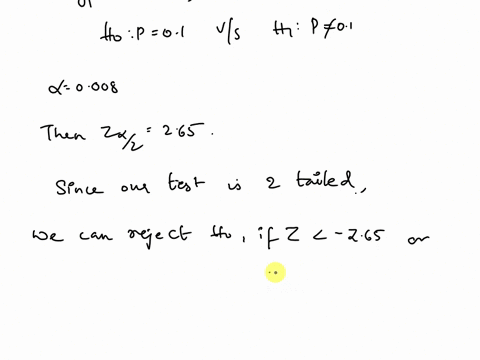 H₀ : P = 0.1 V/s H₁ : P ≠ 0.1
α = 0.008
Then Zα/2 = 2.65.
Since our test is 2 tailed,
we can reject H₀, if Z < -2.65 or